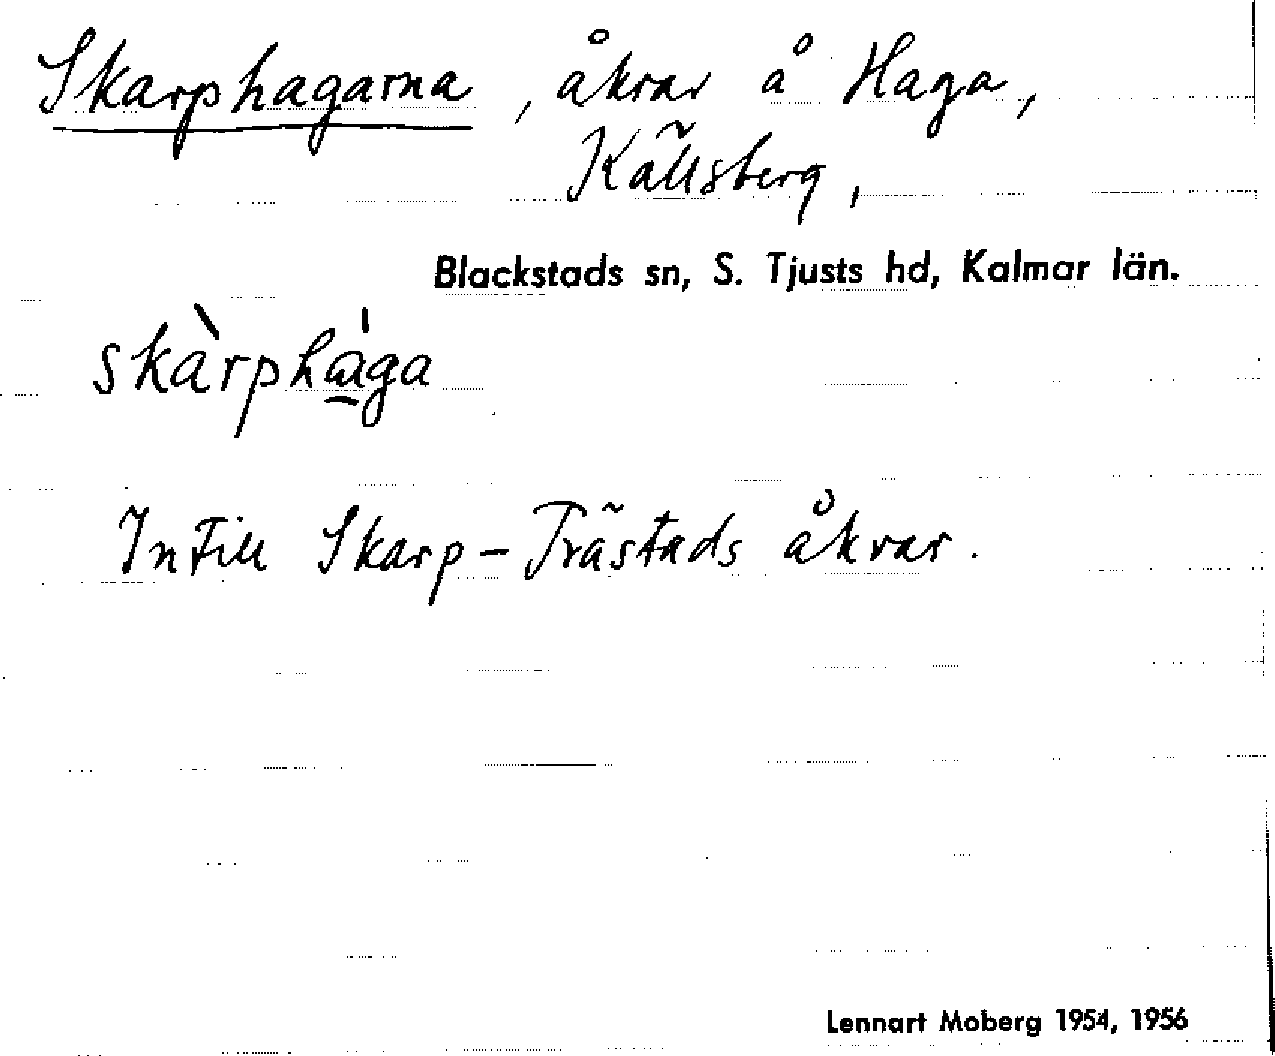 Skarphagarna, åkrar å Haga,
Källsberg,
Blackstads sn, S. Tjusts hd, Kalmar län.
skàrpha̱̍ga
Intill Skarp-Trästads åkrar.
Lennart Moberg 1954, 1956